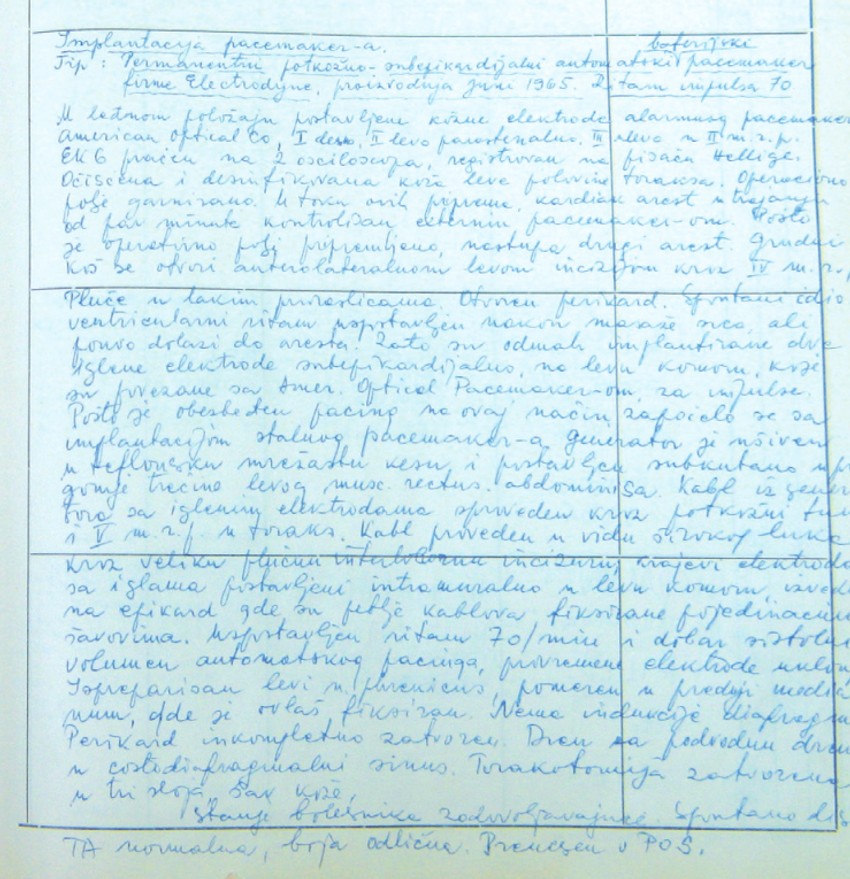 Implantacija pacemaker-a. baterijski
Tip: Permanentni potkožno-subepikardijalni automatski pacemaker
firme Electrodyne, proizvodnja juni 1965. Ritam impulsa 70
U ležećem položaju postavljene kožne elektrode alarmnog pacemaker
American Optical Co, I desno, II levo parasternalno, III levo u II m.r.p.
EKG praćen na 2 osciloskopa, registrovan na pisaču Hellige.
Očišćena i desinfikovana koža leve polovine toraksa. Operaciono
polje garnirano. U toku ovih priprema, kardiak arest u trajanju
od par minuta kontrolisan externim pacemaker-om. Pošto
je operativno polje pripremljeno, nastupa drugi arest. Grudni
koš se otvori anterolateralnom levom incizijom kroz IV m.r.p
Pluće u lakim priraslicama. Otvoren perikard. Spontani idio
ventricularni ritam uspostavljen nakon masaže srca, ali
ponovo dolazi do aresta. Zato su odmah implantirane dve
iglene elektrode subepikardijalno, na levu komoru, koje
su povezane sa Amer. Optical Pacemaker-om, za impulse.
Pošto je obezbeđen pacing na ovaj način, započelo se sa
implantacijom stalnog pacemaker-a, generator je ušiven
u teflonsku mrežastu kesu, i postavljen subkutano
gornje trećine levog musc. rectus. abdominisa. Kabl iz gener
tora sa iglenim elektrodama sproveden kroz potkožni tun
i V m.r.p. u toraks. Kabl proveden u vidu širokog luka
kroz veliku plućnu interlobarnu incizuru, krajevi elektroda
sa iglama postavljeni intramuralno u levu komoru, izvede
na epikard gde su petlje kablova fiksirane pojedinačnim
šavovima. Uspostavljen ritam 70/min i dobar sistolni
volumen automatskog pacinga, privremene elektrode uklon
Isprepariran levi n. phrenicus, pomeren u prednji media
num, gde je ovlaš fiksiran. Nema indukcije diafragm
Perikard inkompletno zatvoren. Dren za podvodnu dren
u costodiafragmalni sinus. Torakotomija zatvorena
u tri sloja, šav kože.
Stanje bolesnika zadovoljavajuće. Spontano dis
TA normalna, boja odlična. Prenešen u POS.